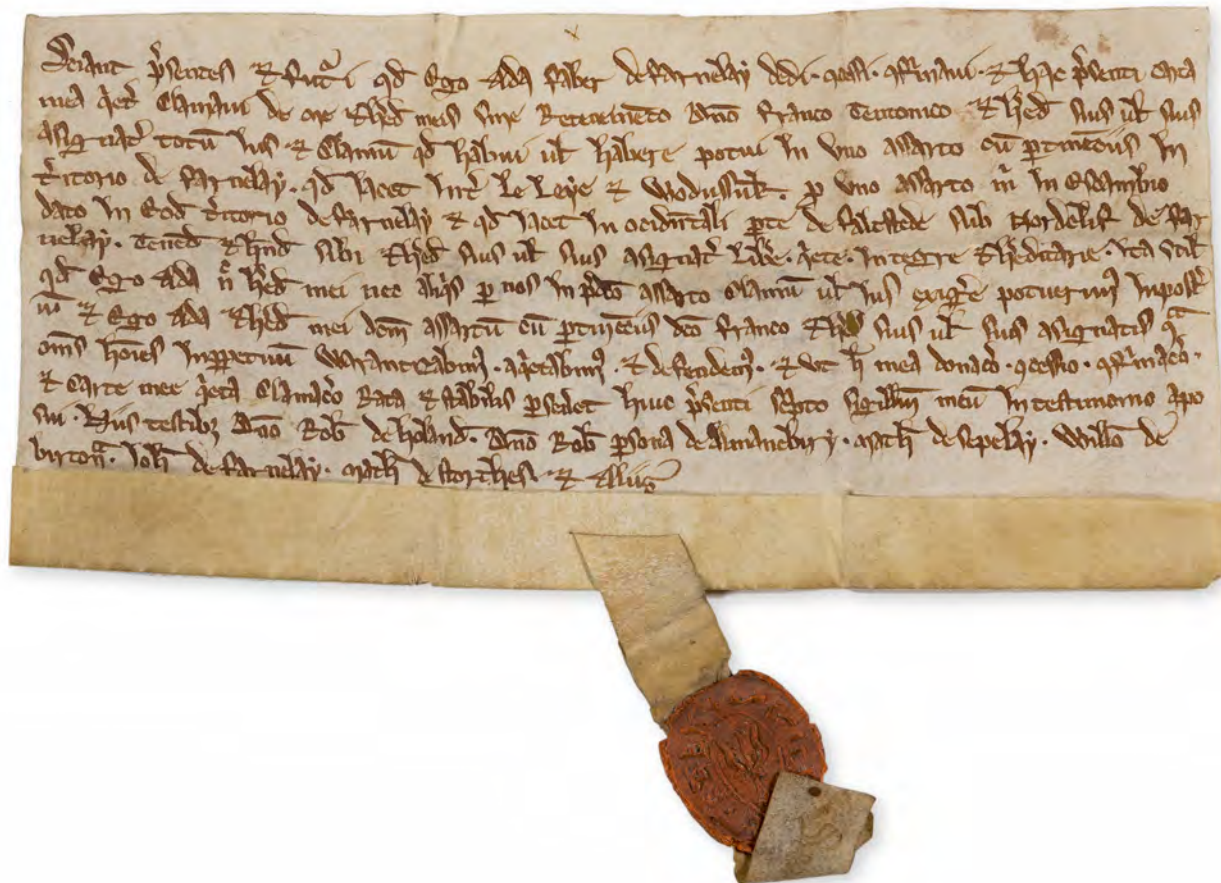 Sciant p̄sentes & futᵘi qd̄ Ego Ada faber de farnelay dedi · ꝯcessi · ꝯfirmaui · & hac p̄senti carta
mea q̇etū Clamaui de me & hed̄ meis sine Retenem̄to Dn̄o franco Teutonico & hed̄ suis ul̄ suis
asignat̄ totū Ius & Clamiū qd̄ habui ul̄ habere potui In vno assarto cū ꝑtinēciis In
t̄ritorio de farnelay · qd̄ Iacet Int̄ Le Leye & · ꝑ vno assarto m̄ In Escambio
dato In Eod̄ t̄ritorio de farnelay & qd̄ Iacet In ocid̄ntali ꝑte de falestede sub Nordclif de far
nelay · Tenēd & hn̄d sibi & hed̄ suis ul̄ suis asignat̄ Libe · q̇ete · Integre & h̄editarie · Ita
qd̄ Ego Ada n̄ hed̄ mei nec aliq̇s ꝑ nos In p̄dc̄o assarto Clamiū ul̄ Ius exiḡe poterim⁹ Inpost̄
& Ego Ada & hed̄ mei dc̄m assartū cū ꝑtinēciis dc̄o franco & hed̄ suis ul̄ suis asignatis
om̄s hoīes Inꝑpetuū Warantizabim⁹ · aq̇etabim⁹ · & defendem⁹ · & vt h̄ mea donac̄o · ꝯcessio · ꝯfirmac̄o ·
& Carte mee q̇eta Clamac̄o Rata & stabilis ꝑseūet huic p̄senti sc̄pto sigillum meū In testimonio apo
sui · Hiis testibȝ Dn̄o Rob̄ de holand · Dn̄o Rob̄ ꝑsona de Almanebury · math̄ de sepelay · Will̄o de
birton · Ioh̄ de farnelay · math̄ de storthes · & Aliis